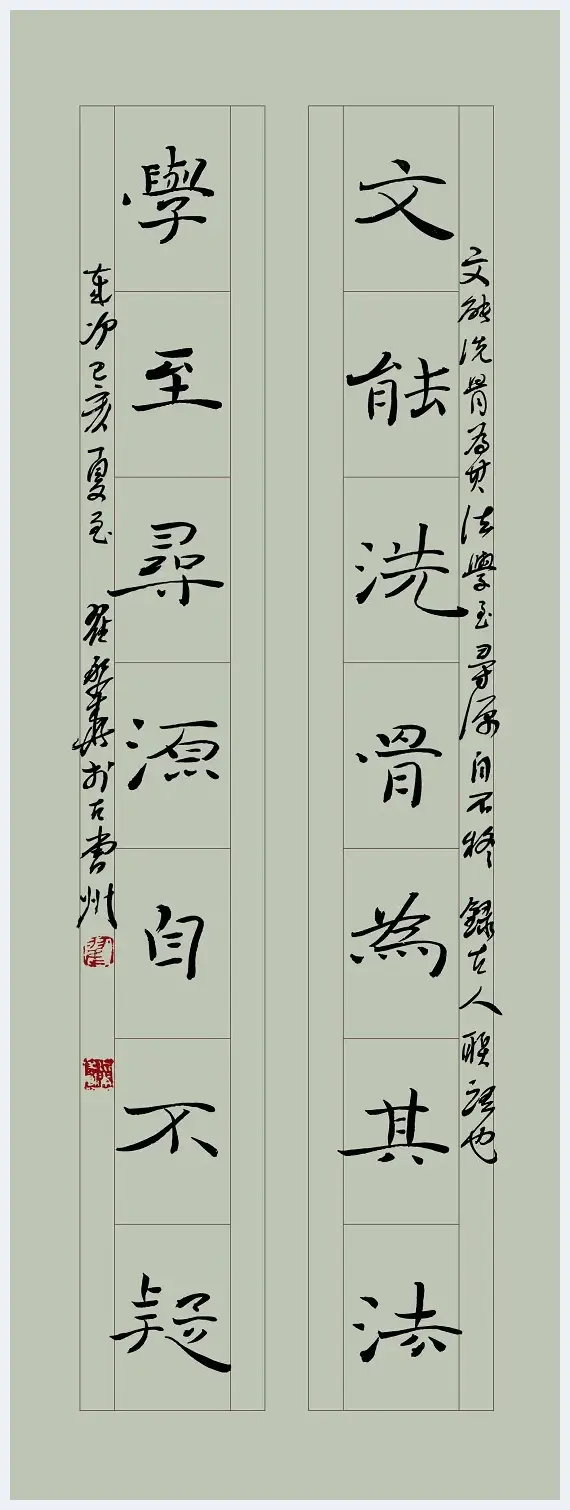 文能洗骨為其法
文能洗骨為其法學至尋源自不疑 録古人联語也
學至尋源自不疑
歲次己亥夏至 翟於古曹州
翟